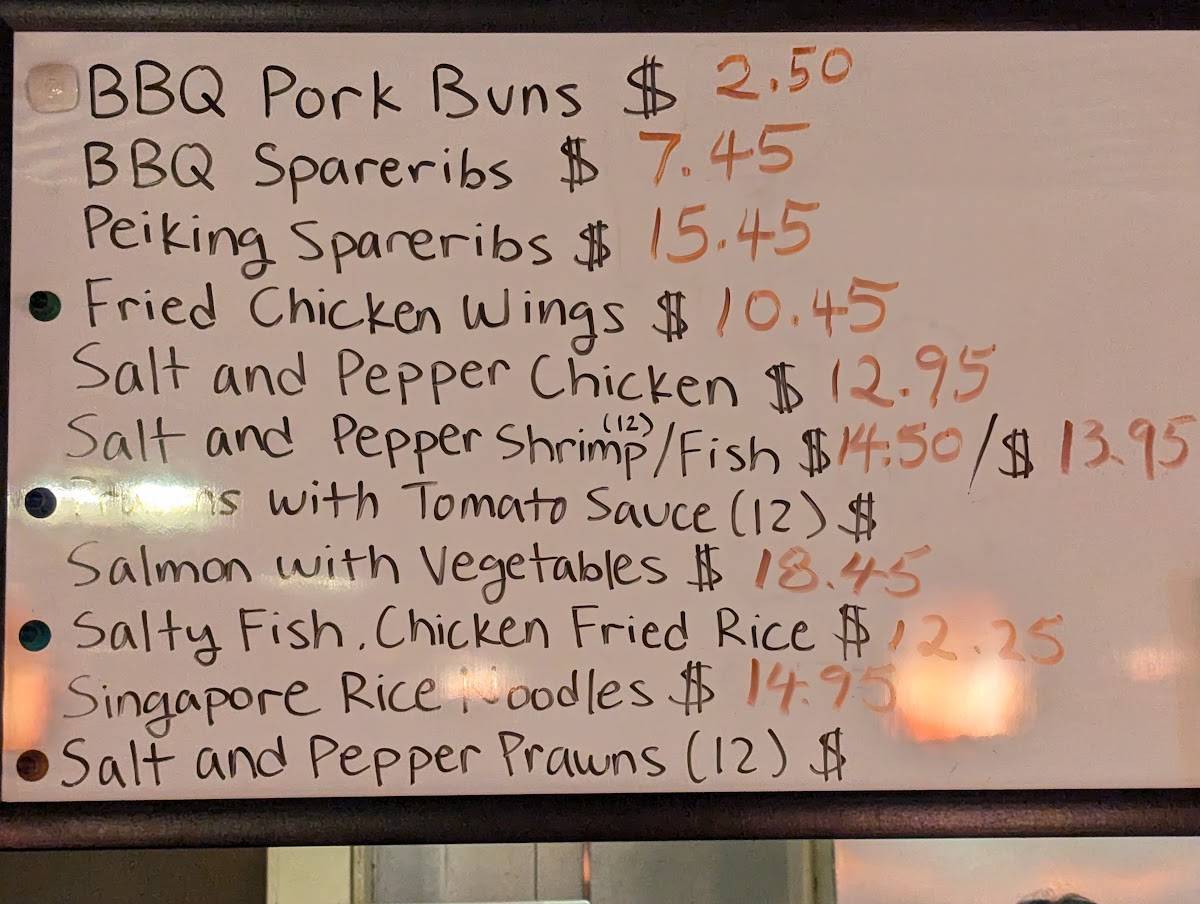 BBQ Pork Buns $ 2.50
BBQ Spareribs $ 7.45
Peiking Spareribs $ 15.45
Fried Chicken Wings $ 10.45
Salt and Pepper Chicken $ 12.95
Salt and Pepper Shrimp (12)/Fish $14.50/$ 13.95
Prawns with Tomato Sauce (12) $
Salmon with Vegetables $ 18.45
Salty Fish. Chicken Fried Rice $ 12.25
Singapore Rice Noodles $ 14.95
Salt and Pepper Prawns (12) $